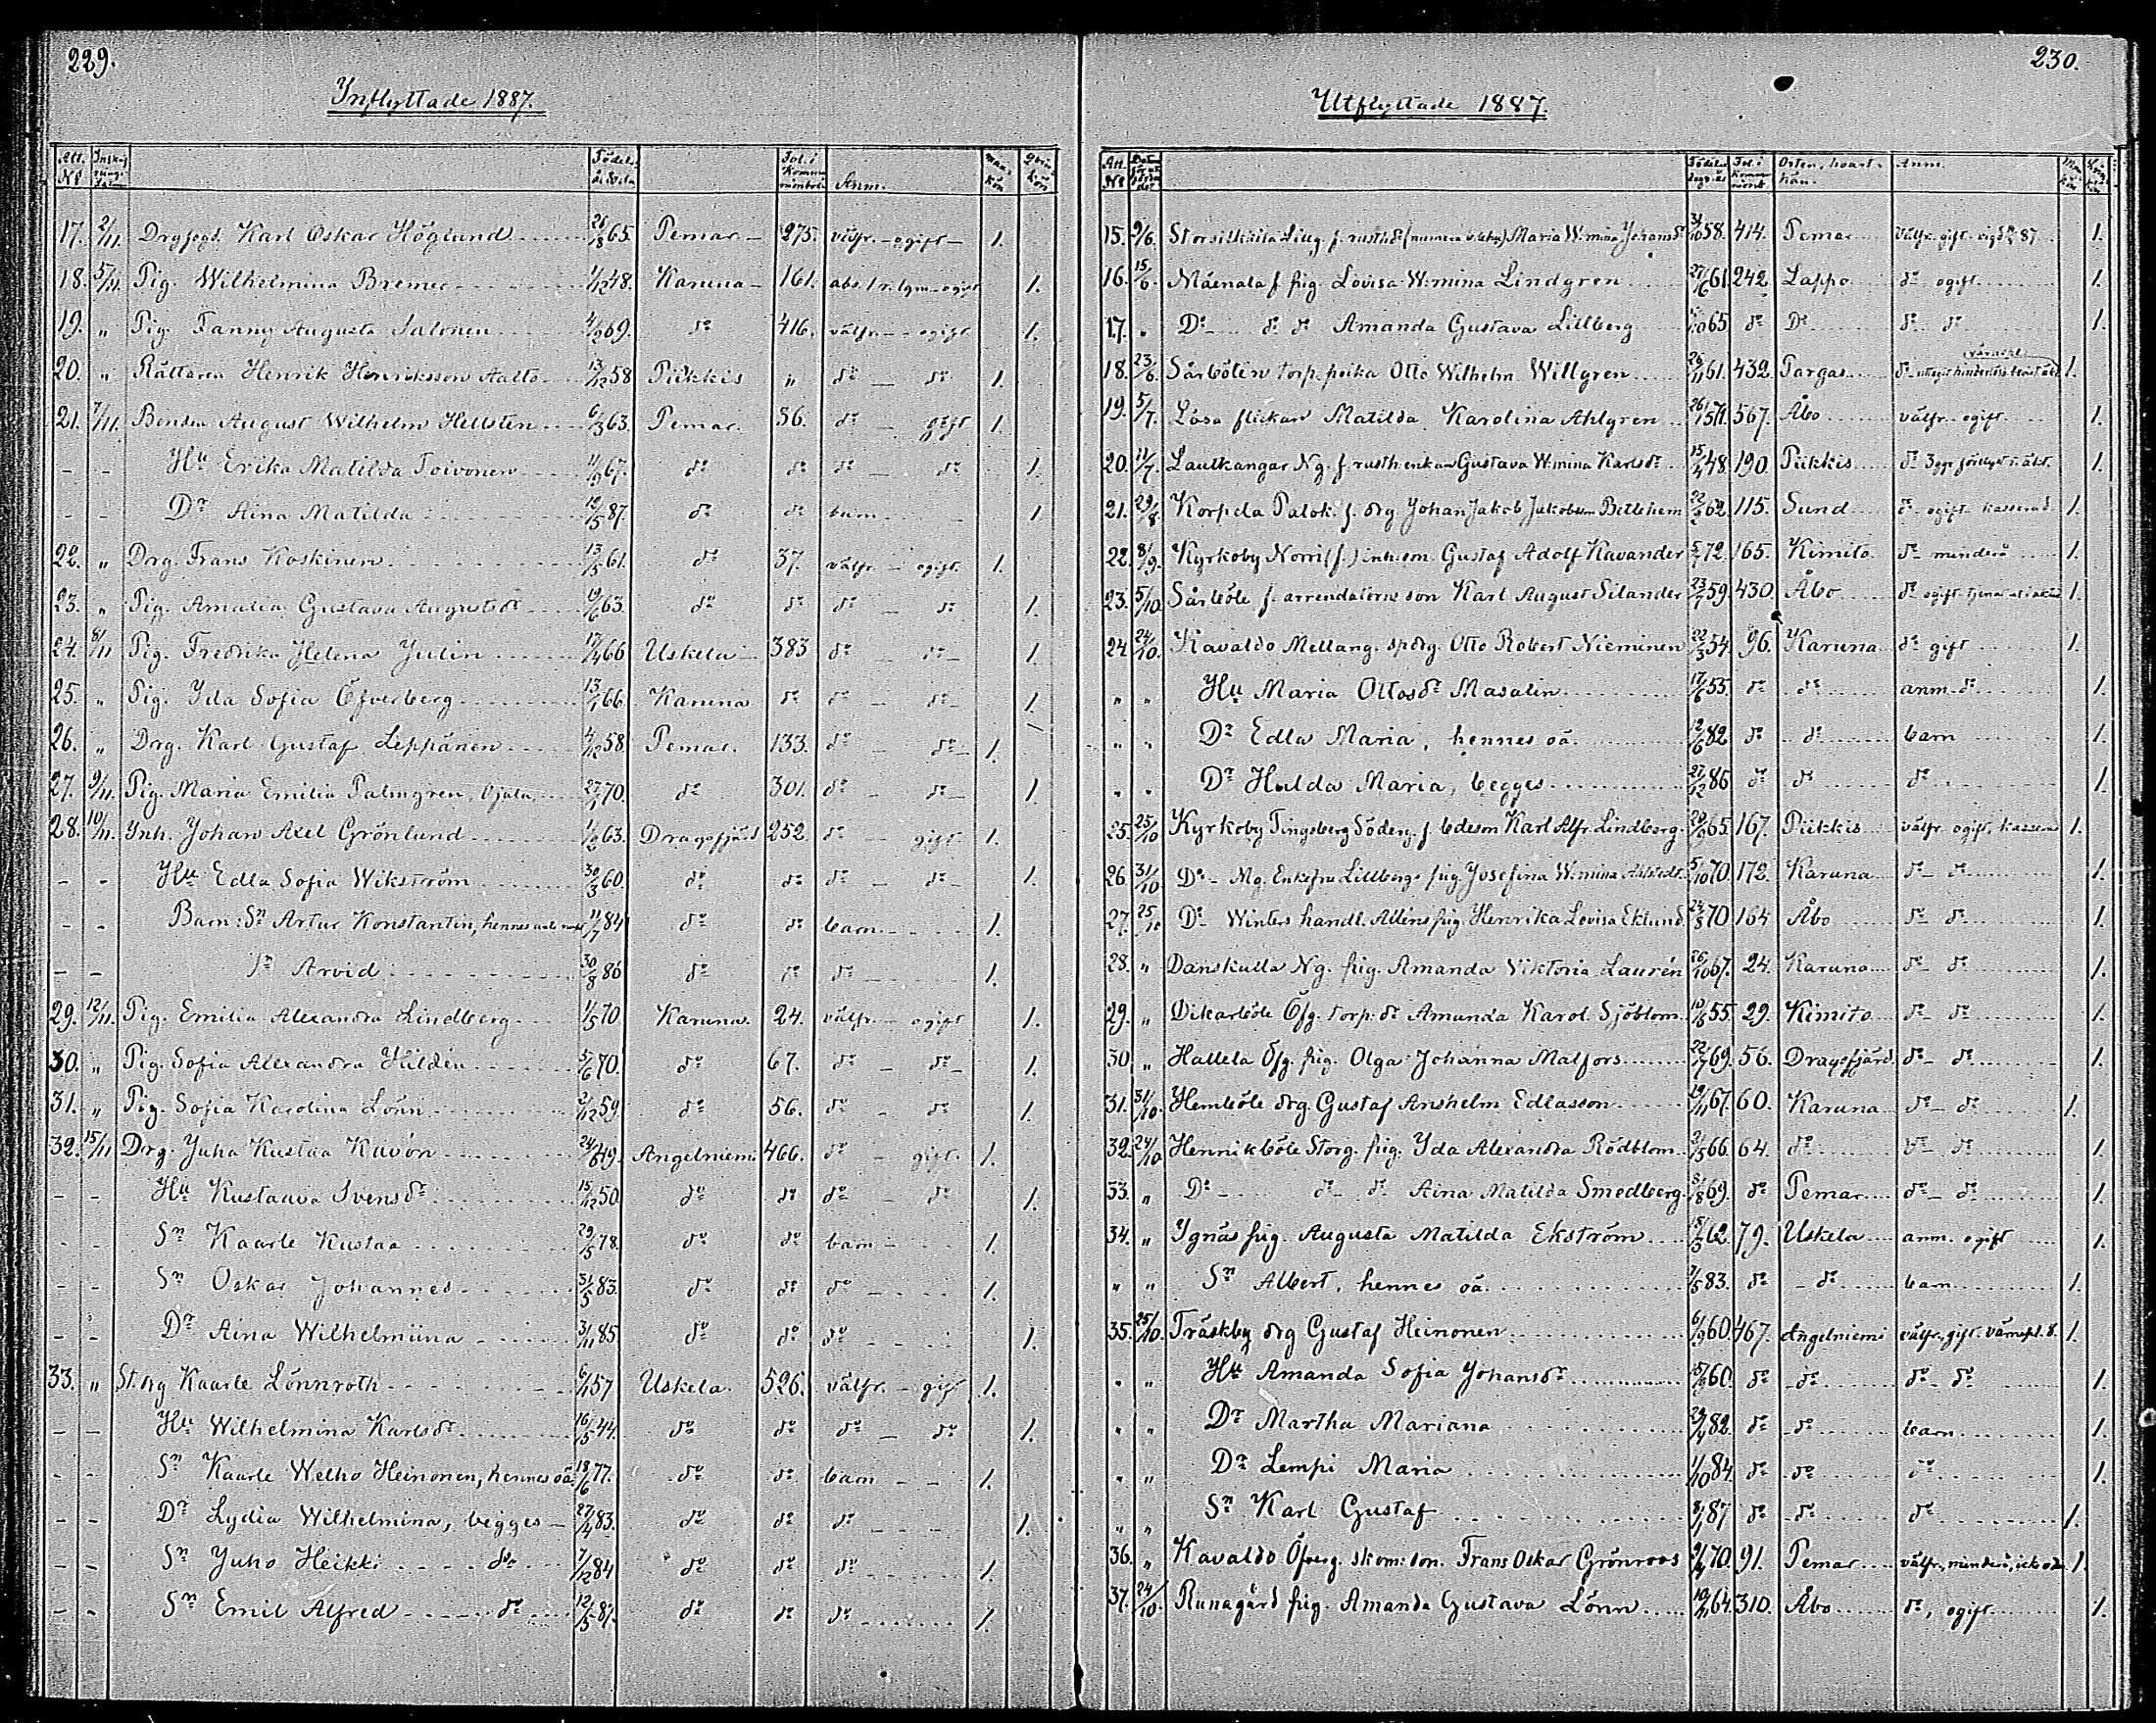 229.
Inflyttade 1887.
Att. Nº Födelse Anm. Man kön Qvin kön
17. 2/11 Drg.  Karl Oskar Höglund 65. Pemar 275. välfr. ogift 1.
18. 5/11. Pig. Wilhelmina Bremer 1/12 48. Karuna 161. ogift 1.
19. " Pig. Fanny Augusta Salonen 69. dº 416. välfr. ogift 1.
20. " Rättaren Henrik Henriksson Aalto 13/12 58 Piikkis " dº dº 1.
21. 7/11. Bonden August Wilhelm Hellsten 6/3 63. Pemar. 36. dº gift 1.
- - Hu Erika Matilda Toivonen 11/9 67. dº dº dº dº 1.
- - Dr Aina Matilda 12/5 87. dº dº barn 1
22. " Drg. Frans Koskinen 13/5 61. dº 37. välfr. ogift 1.
23. " Pig. Amalia Gustava Augustsdr 19/6 63. dº dº dº dº 1.
24. 8/11 Pig. Fredrika Helena Julin 17/4 66 Uskela 383 dº dº 1.
25. " Pig. Ida Sofia Öfverberg 13/1 66. Karuna dº dº dº 1.
26. " Drg. Karl Gustaf Leppänen 4/12 58. Pemar. 133. dº dº 1.
27. 9/11. Pig. Maria Emilia Palmgren, Ojala, 27/1 70. dº 301. dº dº 1.
28. 10/11. Inh. Johan Axel Grönlund 63. Dragsfjärd 252. dº gift. 1.
- - Hu Edla Sofia Wikström 30/3 60. dº dº dº dº 1.
- - Barn: Sn Artur Konstantin, hennes 11/7 84 dº dº barn 1.
- - Sn Arvid 30/8 86 dº dº dº 1.
29. 12/11. Pig. Emilia Alexandra Lindberg 1/5 70 Karuna. 24. välfr. ogift 1.
30. " Pig. Sofia Alexandra Hildén 5/6 70. dº 67. dº dº 1.
31. " Pig. Sofia Karolina Lönn 2/12 59. dº 56. dº dº 1.
32. 15/11 Drg. Juha Kustaa Kavón 24/6 49. Angelniemi 466. dº gift. 1.
- - Hu Kustaava Svensdr 15/12 50. dº dº dº dº 1.
- - Sn Kaarle Kustaa 29/5 78. dº dº barn 1.
- - Sn Oskar Johannes 31/5 83. dº dº dº 1.
- - Dr Aina Wilhelmiina 3/11 85. dº dº dº 1.
33. " St.drg Kaarle Lönnroth 6/1 57 Uskela. 526. välfr. gift 1.
- - Hu Wilhelmina Karlsdr 16/5 44. dº dº dº dº 1.
- - Sn Kaarle Welho Heinonen, hennes oä. 18/6 77. dº dº barn 1.
- - Dr Lydia Wilhelmina, begges 27/4 83. dº dº dº 1.
- - Sn Juho Heikki dº 7/12 84 dº dº dº 1.
- - Sn Emil Alfred dº 12/5 81. dº dº dº 1.
230.
Utflyttade 1887.
Att Nº Orten, hvart- hän. Anm.
15. 9/6. Storsilkiila Lillg. f. rusth.dr Maria W:mina Johansdr 31/10 58. 414. Pemar välfr. gift 87 1.
16. 15/6. Mäenala f. pig. Lovisa W:mina Lindgren 27/6 61. 242. Lappo dº ogift 1.
17. " Dº dº dº Amanda Gustava Lillberg 65 dº Dº dº dº 1.
18. 23/6. Sårböle torp. poika Otto Wilhelm Willgren 26/11 61. 432. Pargas dº 1.
19. 5/7. Lösa flickan Matilda Karolina Ahlgren 567. Åbo välfr. ogift 1.
20. 11/7. Lautkangar Ng. f. rusth.enkan Gustava W:mina Karlsdr 15/4 48. 190. Piikkis dº 1.
21. 29/8. Korpela Palok. f. drg Johan Jakob Jakobson Betlehem 22/2 62. 115. Sund dº ogift kasserad 1.
22. 8/9. Kyrkoby Norri (f.) inh. son Gustaf Adolf Kavander 5/7 72. 165. Kimito dº minderå 1.
23. 5/10. Sårböle f. arrendatorns son Karl August Silander 23/7 59 430. Åbo dº ogift 1.
24 24/10. Kavaldo Mellang. spdrg. Otto Robert Nieminen 22/3 54. 96. Karuna dº gift 1.
" " Hu Maria Ottosdr Masalin 17/6 55. dº dº anm. dº 1.
" " Dr Edla Maria, hennes oä. 12/6 82 dº dº barn 1.
" " Dr Hulda Maria, begges 27/12 86 dº dº dº 1.
25. 25/10 Kyrkoby Tingsberg Söderg. f. bdeson Karl Alfr. Lindberg 65. 167. Piikkis välfr. ogift, kasserad 1.
26. 31/10 Dº Mg. Enkefru Lillbergs pig. Josefina W:mina Ahlstedt 5/10 70. 172. Karuna dº dº 1.
27. 25/10 Dº Winters handl. Alléns pig. Henrika Lovisa Eklund 24/8 70 164 Åbo dº dº 1.
28. " Danskulla Ng. pig. Amanda Viktoria Laurén 26/10 67. 24. Karuna dº dº 1.
29. " Dikarböle Öfg. torp. dr Amanda Karol. Sjöblom 55. 29. Kimito dº dº 1.
30. " Hallela Öfg. pig. Olga Johanna Malfors 22/7 69. 56. Dragsfjärd dº dº 1.
31. 31/10. Hemböle drg. Gustaf Anshelm Edlasson 67. 60. Karuna dº dº 1.
32. 24/10 Henriksböle Storg. pig. Ida Alexandra Rödblom 2/5 66. 64. dº dº dº 1.
33. " Dº dº dº Aina Matilda Smedberg 8/8 69. dº Pemar dº dº 1.
34. " Ignäs pig. Augusta Matilda Ekström 62. 79. Uskela anm. ogift 1.
" " Sn Albert, hennes oä. 7/5 83. dº dº barn 1.
35. 25/10. Träskby drg Gustaf Heinonen 6/9 60 467. Angelniemi välfr., gift. 1.
" " Hu Amanda Sofia Johansdr 60. dº dº dº dº 1.
" " Dr Martha Mariana 29/4 82. dº dº barn 1.
" " Dr Lempi Maria 1/10 84. dº dº dº 1.
" " Sn Karl Gustaf 8/1 87 dº dº dº 1.
36. " Kavaldo Öfverg. skom: son. Frans Oskar Grönroos 70. 91. Pemar välfr., minderå, 1.
37. 24/10. Runagård pig. Amanda Gustava Lönn 64. 310. Åbo dº, ogift 1.